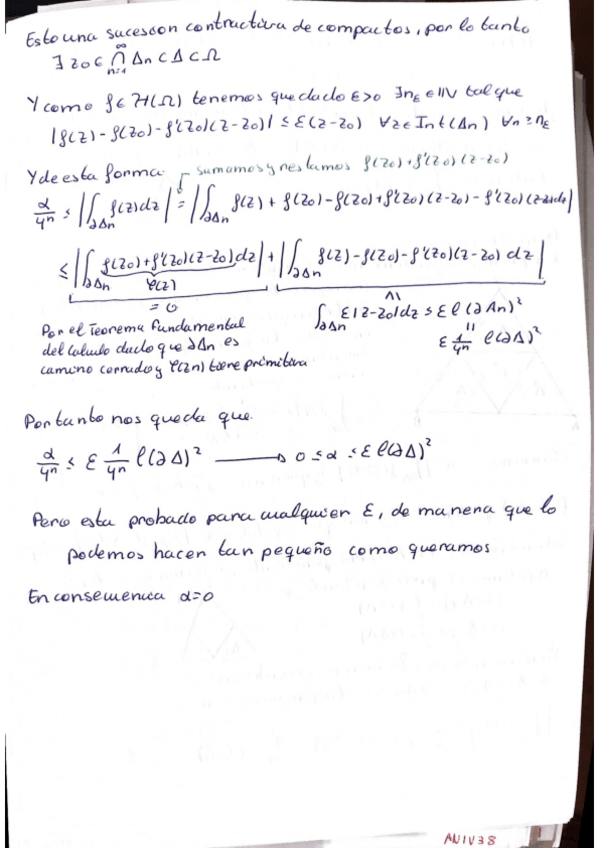 Esto una sucesion contractiva de compactos, por lo tanto
∃ z0 ∈ ∩_{n=1}^{∞} Δn ⊂ Δ ⊂ Ω
Y como f ∈ H(Ω) tenemos que dado ε>0 ∃nε ∈ IN tal que
|f(z) - f(z0) - f'(z0)(z-z0)| ≤ ε(z-z0) ∀z∈Int(Δn) ∀n≥nε
Y de esta forma sumamos y restamos f(z0)+f'(z0)(z-z0)
α/4ⁿ ≤ |∫_{∂Δn} f(z)dz| = |∫_{∂Δn} f(z) + f(z0) - f(z0) + f'(z0)(z-z0) - f'(z0)(z-z0)dz|
≤ |∫_{∂Δn} f(z0)+f'(z0)(z-z0)dz| + |∫_{∂Δn} f(z)-f(z0)-f'(z0)(z-z0) dz|
φ(z)
= 0
Por el Teorema fundamental
del calculo dado que ∂Δn es
camino cerrado y φ(zn) tiene primitiva
∧|
∫_{∂Δn} ε|z-z0|dz ≤ ε l(∂Δn)²
||
ε 1/4ⁿ l(∂Δ)²
Por tanto nos queda que
α/4ⁿ ≤ ε 1/4ⁿ l(∂Δ)² → 0 ≤ α ≤ ε l(∂Δ)²
Pero esta probado para cualquier ε, de manera que lo
podemos hacer tan pequeño como queramos
En consecuencia α=0
ANIV38